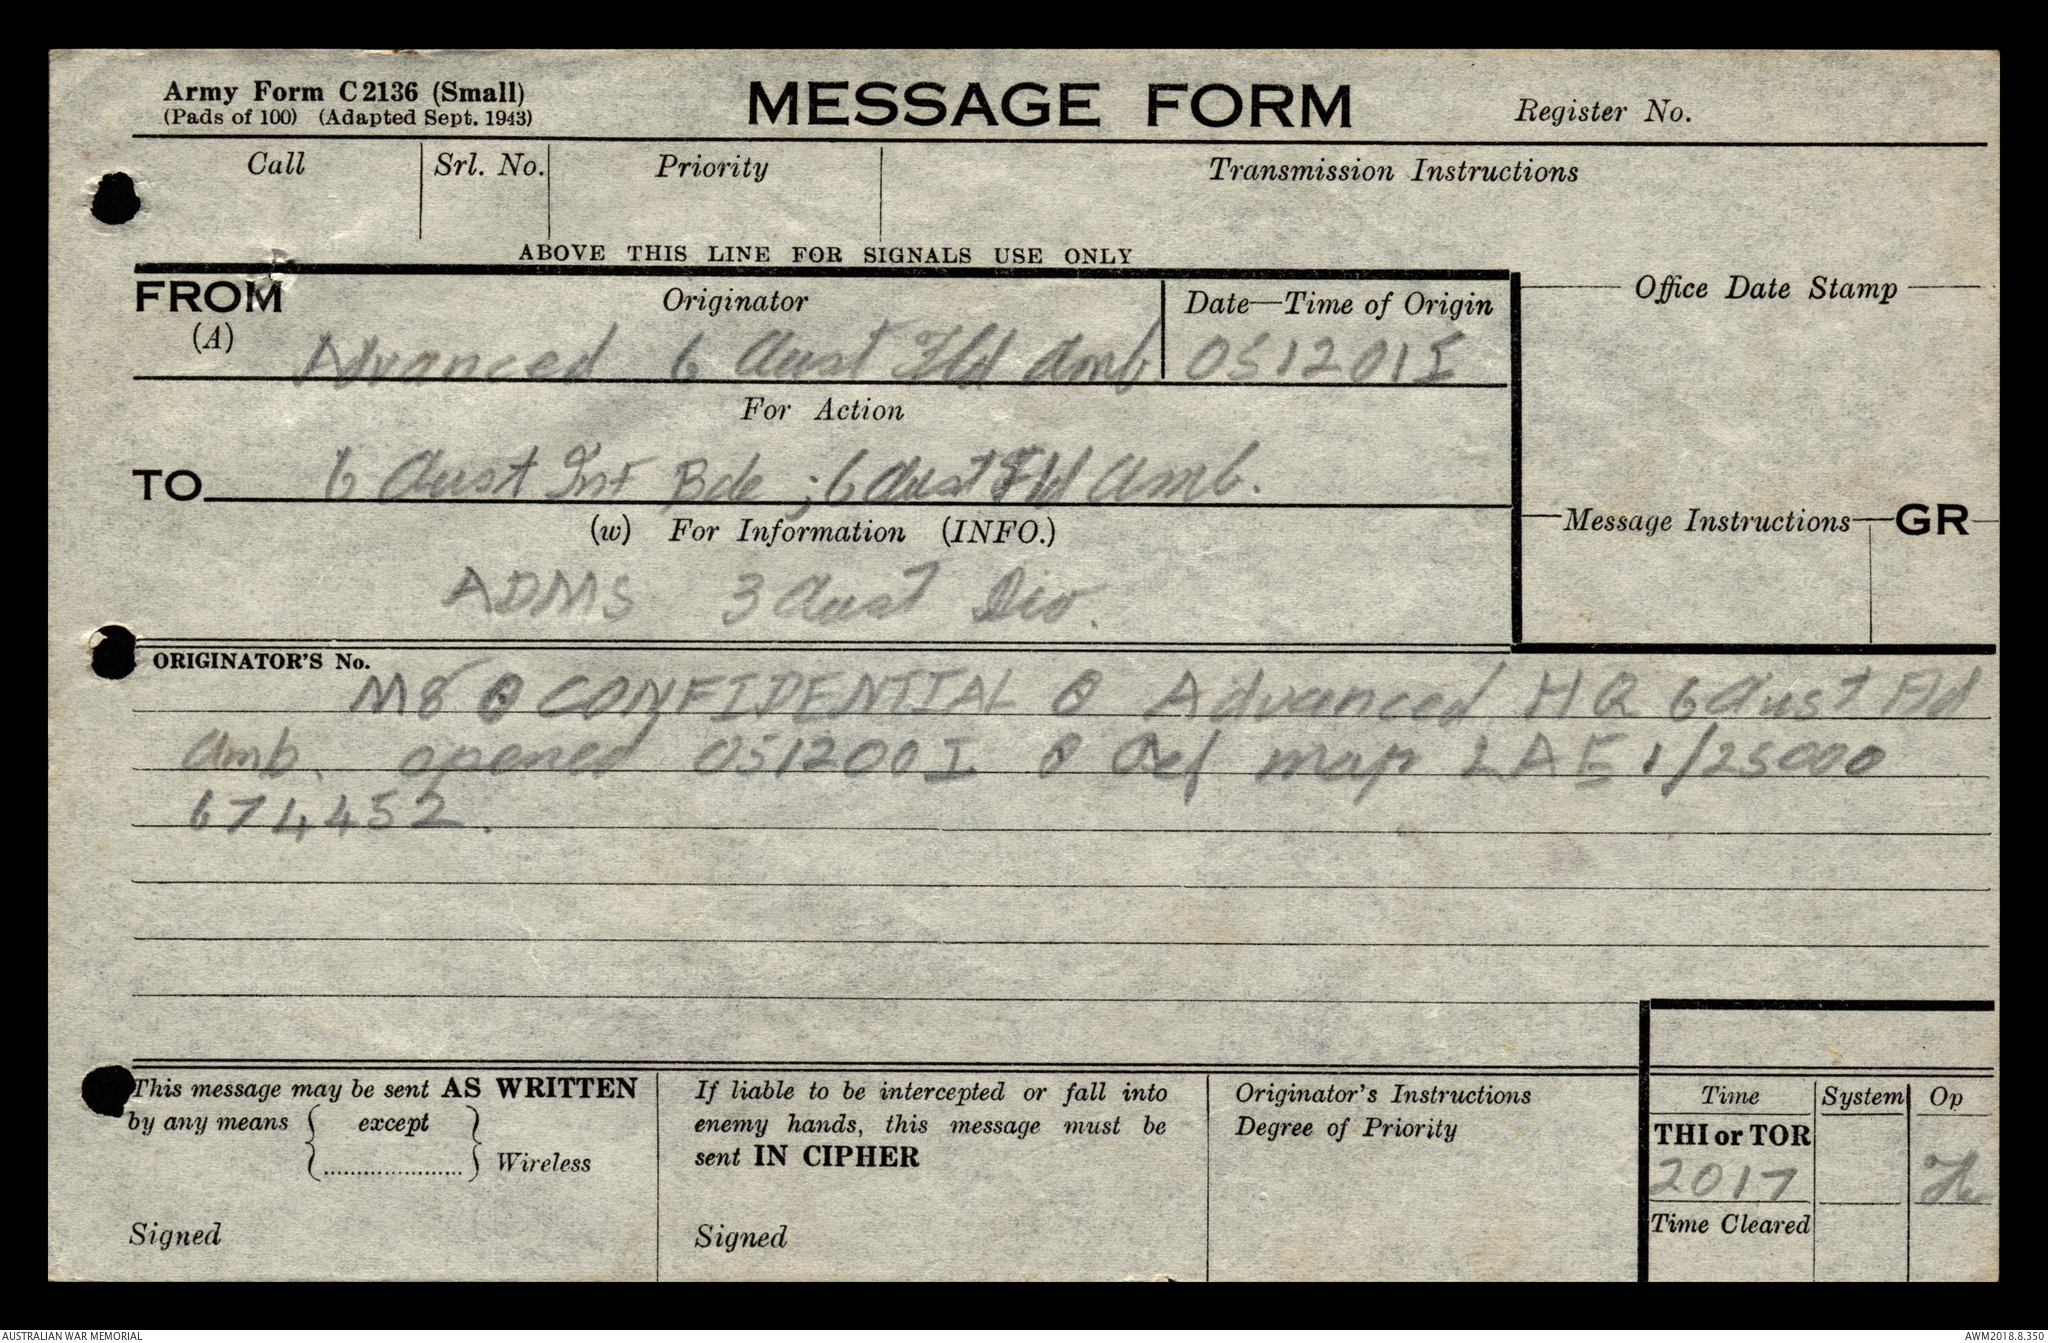 Army Form C2136 (Small)
(Pads of 100) (Adapted Sept. 1943)
MESSAGE FORM
Register No.
Call
Srl. No.
Priority
Transmission Instructions
ABOVE THIS LINE FOR SIGNALS USE ONLY
FROM
(A)
Originator
Date—Time of Origin
Office Date Stamp
Advanced 6 Aust Fld Amb
051201I
For Action
TO
6 Aust Inf Bde ; 6 Aust Fld Amb.
(w) For Information (INFO.)
Message Instructions
GR
ADMS 3 Aust Div.
ORIGINATOR'S No.
M8 θ CONFIDENTIAL θ Advanced HQ 6 Aust Fld
Amb. opened 051200I θ Ref map LAE 1/25000
674452.
This message may be sent AS WRITTEN
by any means { except }
{.....................} Wireless
Signed
If liable to be intercepted or fall into
enemy hands, this message must be
sent IN CIPHER
Signed
Originator's Instructions
Degree of Priority
Time
System
Op
THI or TOR
2017
Time Cleared
AUSTRALIAN WAR MEMORIAL
AWM2018.8.350